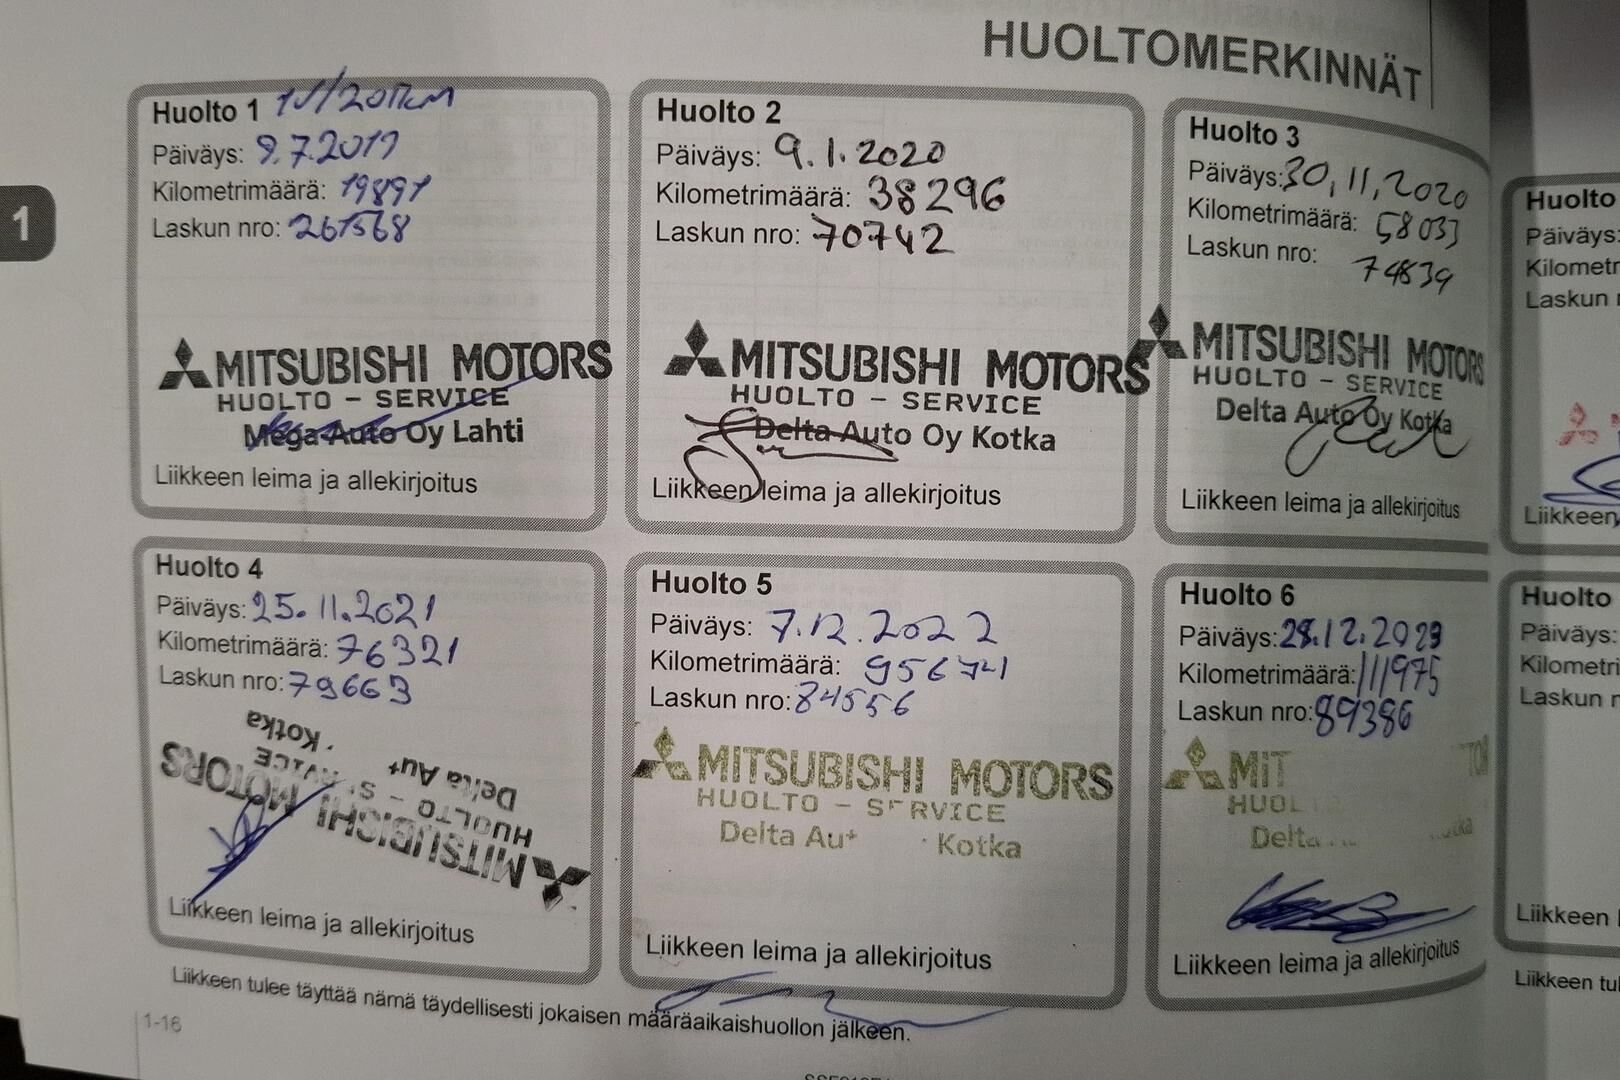 HUOLTOMERKINNÄT
1
Huolto 1
Päiväys: 9.7.2019
Kilometrimäärä: 19891
Laskun nro: 261568
MITSUBISHI MOTORS
HUOLTO - SERVICE
Mega Auto Oy Lahti
Liikkeen leima ja allekirjoitus
Huolto 2
Päiväys: 9.1.2020
Kilometrimäärä: 38296
Laskun nro: 70742
MITSUBISHI MOTORS
HUOLTO - SERVICE
Delta Auto Oy Kotka
Liikkeen leima ja allekirjoitus
Huolto 3
Päiväys: 30,11,2020
Kilometrimäärä: 58033
Laskun nro:
74839
MITSUBISHI MOTORS
HUOLTO - SERVICE
Delta Auto Oy Kotka
Liikkeen leima ja allekirjoitus
Huolto
Päiväys:
Kilometr
Laskun
Liikkeen
Huolto 4
Päiväys: 25.11.2021
Kilometrimäärä: 76321
Laskun nro: 79663
MITSUBISHI MOTORS
HUOLTO - S RVICE
Delta Au Kotka
Liikkeen leima ja allekirjoitus
Huolto 5
Päiväys: 7.12.2022
Kilometrimäärä: 956741
Laskun nro: 84556
MITSUBISHI MOTORS
HUOLTO - SERVICE
Delta Au Kotka
Liikkeen leima ja allekirjoitus
Huolto 6
Päiväys: 28.12.2023
Kilometrimäärä: 111975
Laskun nro: 89386
MIT TOR
HUOL
Delta
Liikkeen leima ja allekirjoitus
Huolto
Päiväys:
Kilometri
Laskun n
Liikkeen l
Liikkeen tulee täyttää nämä täydellisesti jokaisen määräaikaishuollon jälkeen.
Liikkeen tul
1-16